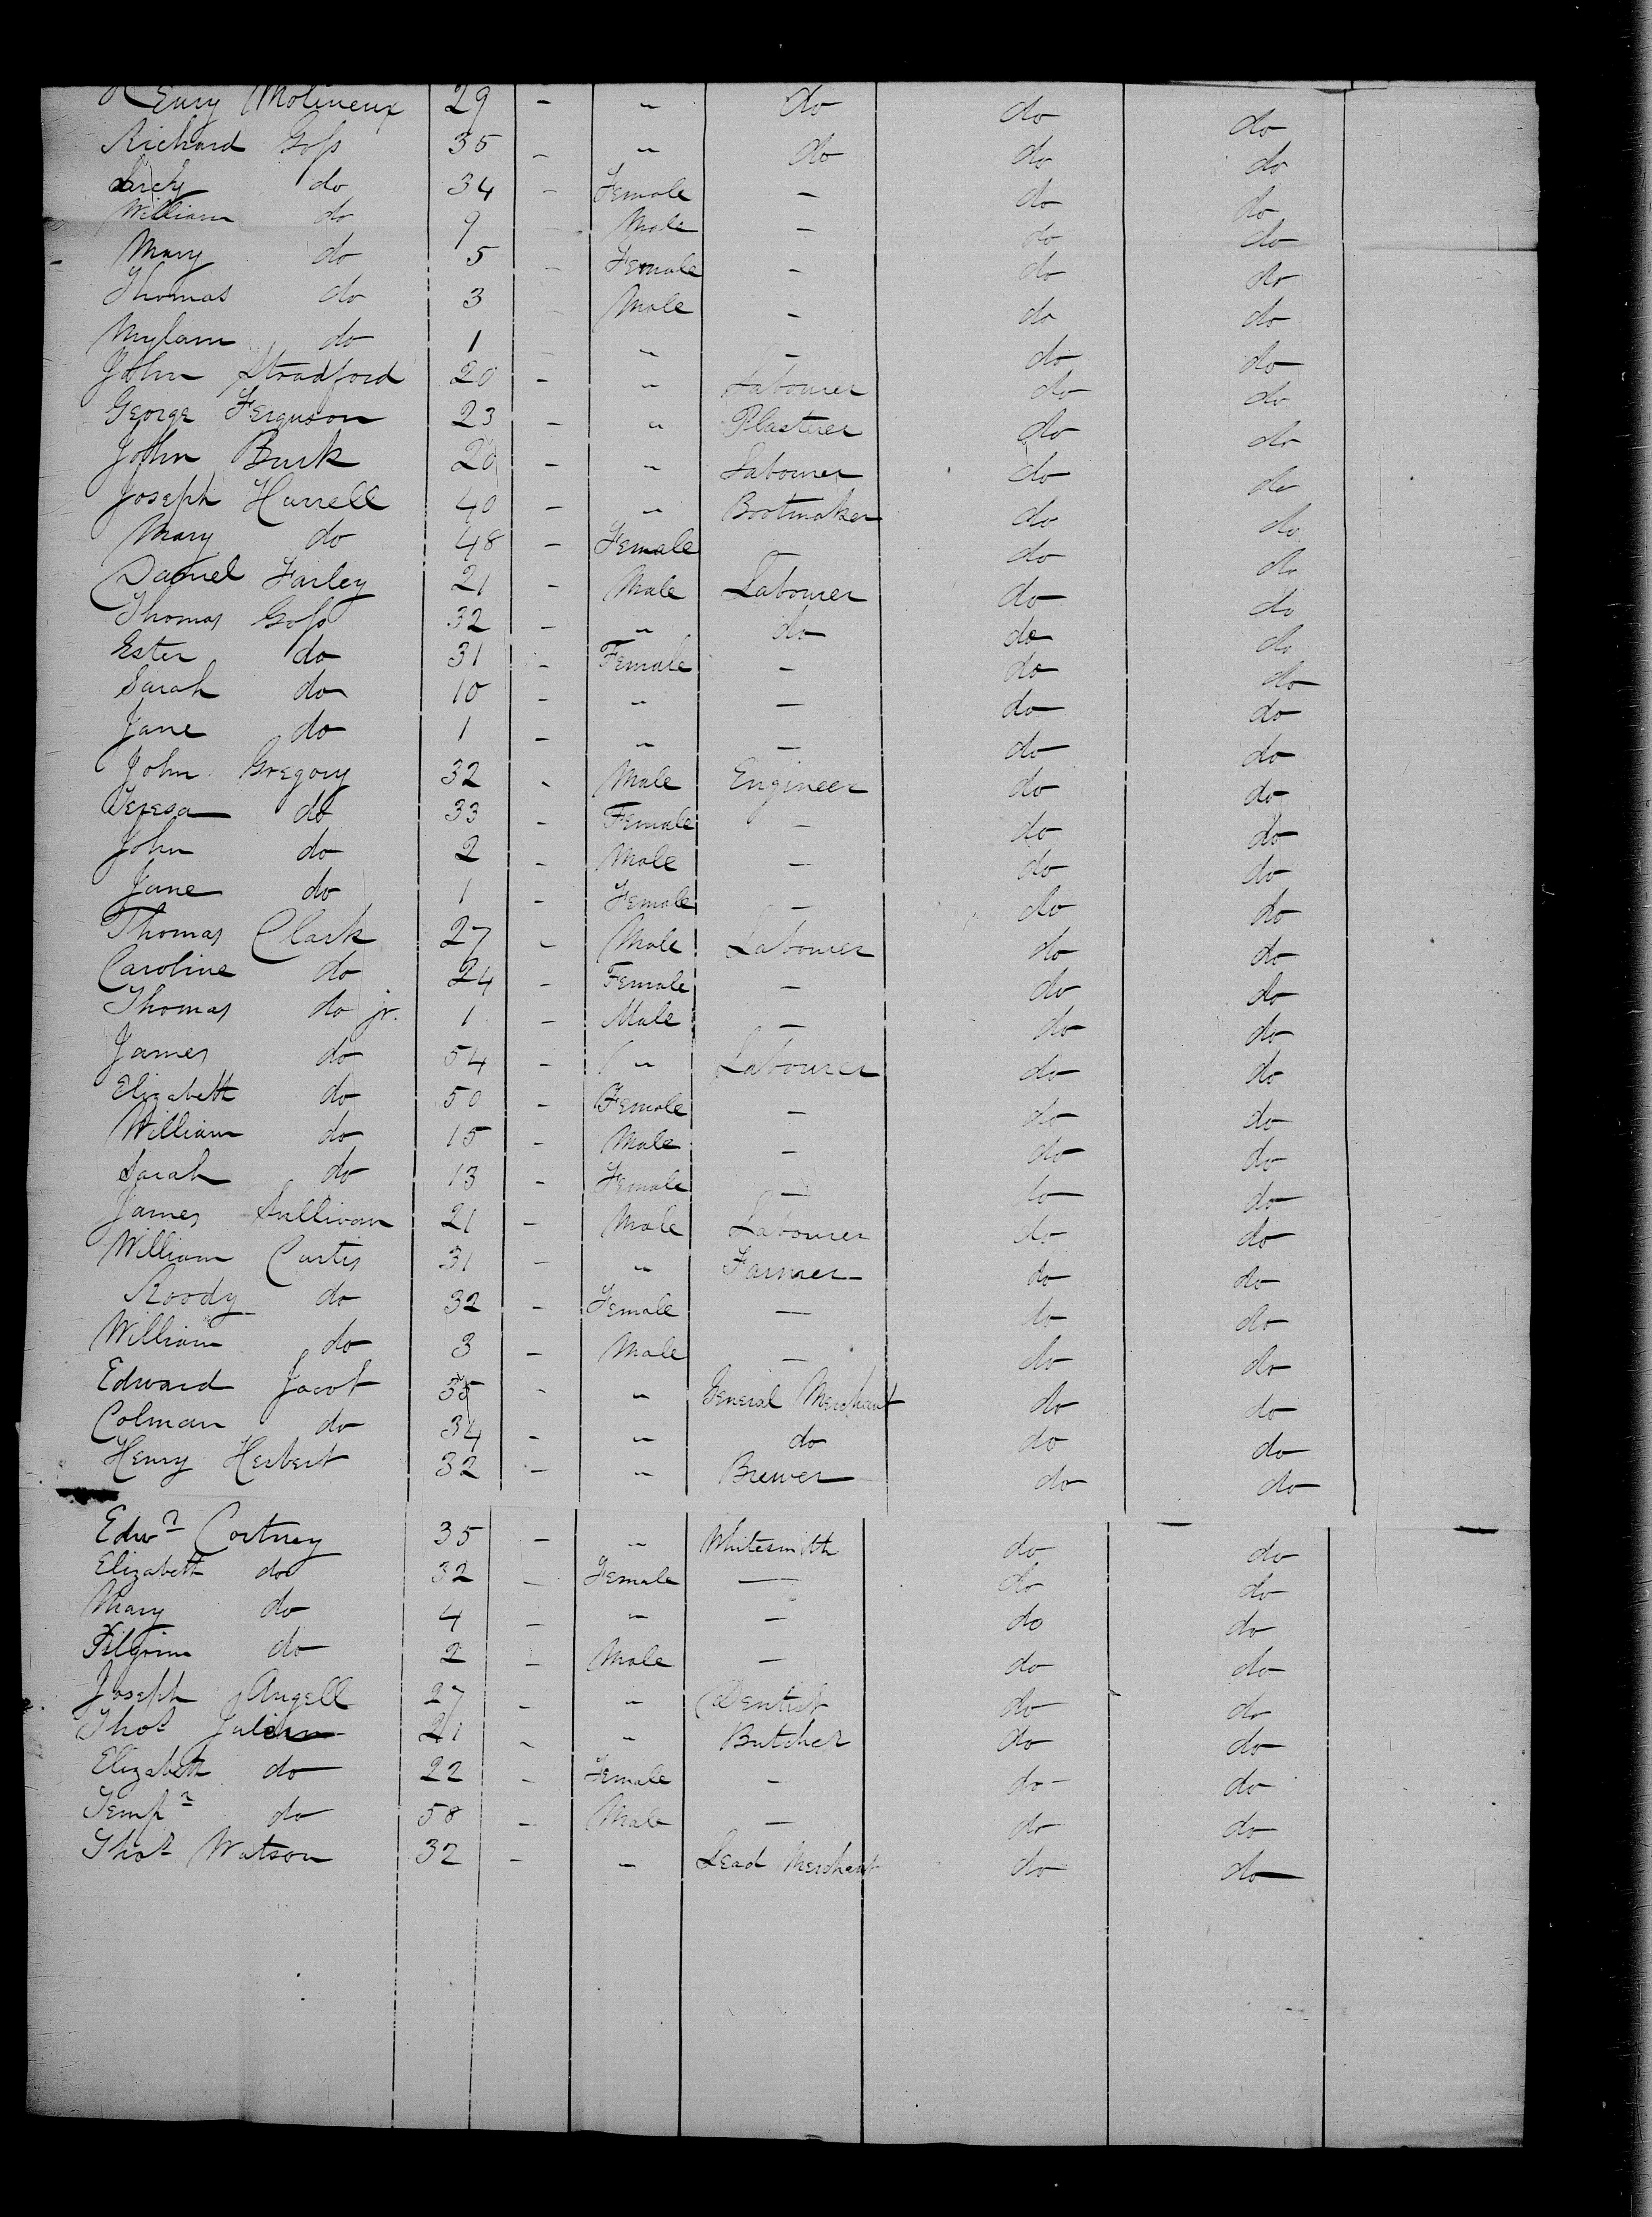 Henry Molineux 29 - " do do do
Richard Goss 35 - " do do do
Lucy do 34 - Female - do do
William do 9 - Male - do do
Mary do 5 - Female - do do
Thomas do 3 - Male - do do
Mylam do 1 - " - do do
John Stradford 20 - " Labourer do do
George Ferguson 23 - " Plasterer do do
John Burk 20 - " Labourer do do
Joseph Harrell 40 - " Bootmaker do do
Mary do 48 - Female - do do
Daniel Farley 21 - Male Labourer do do
Thomas Goss 32 - " do do do
Ester do 31 - Female - do do
Sarah do 10 - " - do do
Jane do 1 - " - do do
John Gregory 32 - Male Engineer do do
Teresa do 33 - Female - do do
John do 2 - Male - do do
Jane do 1 - Female - do do
Thomas Clark 27 - Male Labourer do do
Caroline do 24 - Female - do do
Thomas do jr. 1 - Male - do do
James do 54 - " Labourer do do
Elizabeth do 50 - Female - do do
William do 15 - Male - do do
Sarah do 13 - Female - do do
James Sullivan 21 - Male Labourer do do
William Curtis 31 - " Farmer do do
Roody do 32 - Female - do do
William do 3 - Male - do do
Edward Jacob 35 - " General Merchant do do
Colman do 34 - " do do do
Henry Herbert 32 - " Brewer do do
Edwd Cortney 35 - " Whitesmith do do
Elizabeth do 32 - Female - do do
Mary do 4 - " - do do
Pilgrim do 2 - Male - do do
Joseph Angell 27 - " Dentist do do
Thos 21 - " Butcher do do
Elizabeth do 22 - Female - do do
do 58 - Male - do do
Thos Watson 32 - " Lead Merchant do do